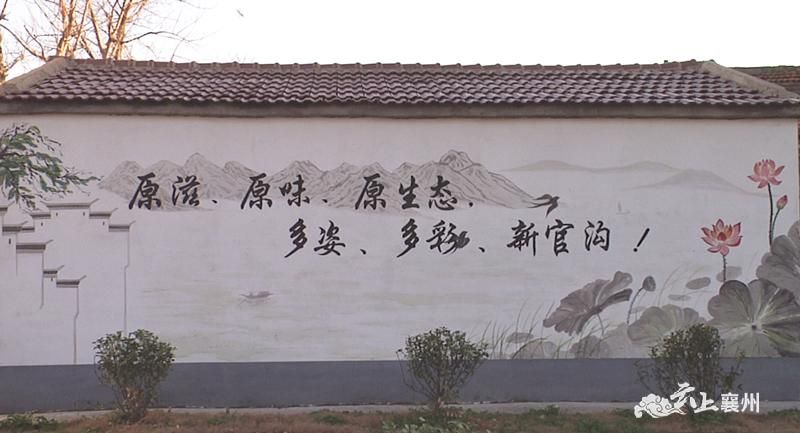 原滋、原味、原生态,
多姿、多彩、新官沟!
云上襄州